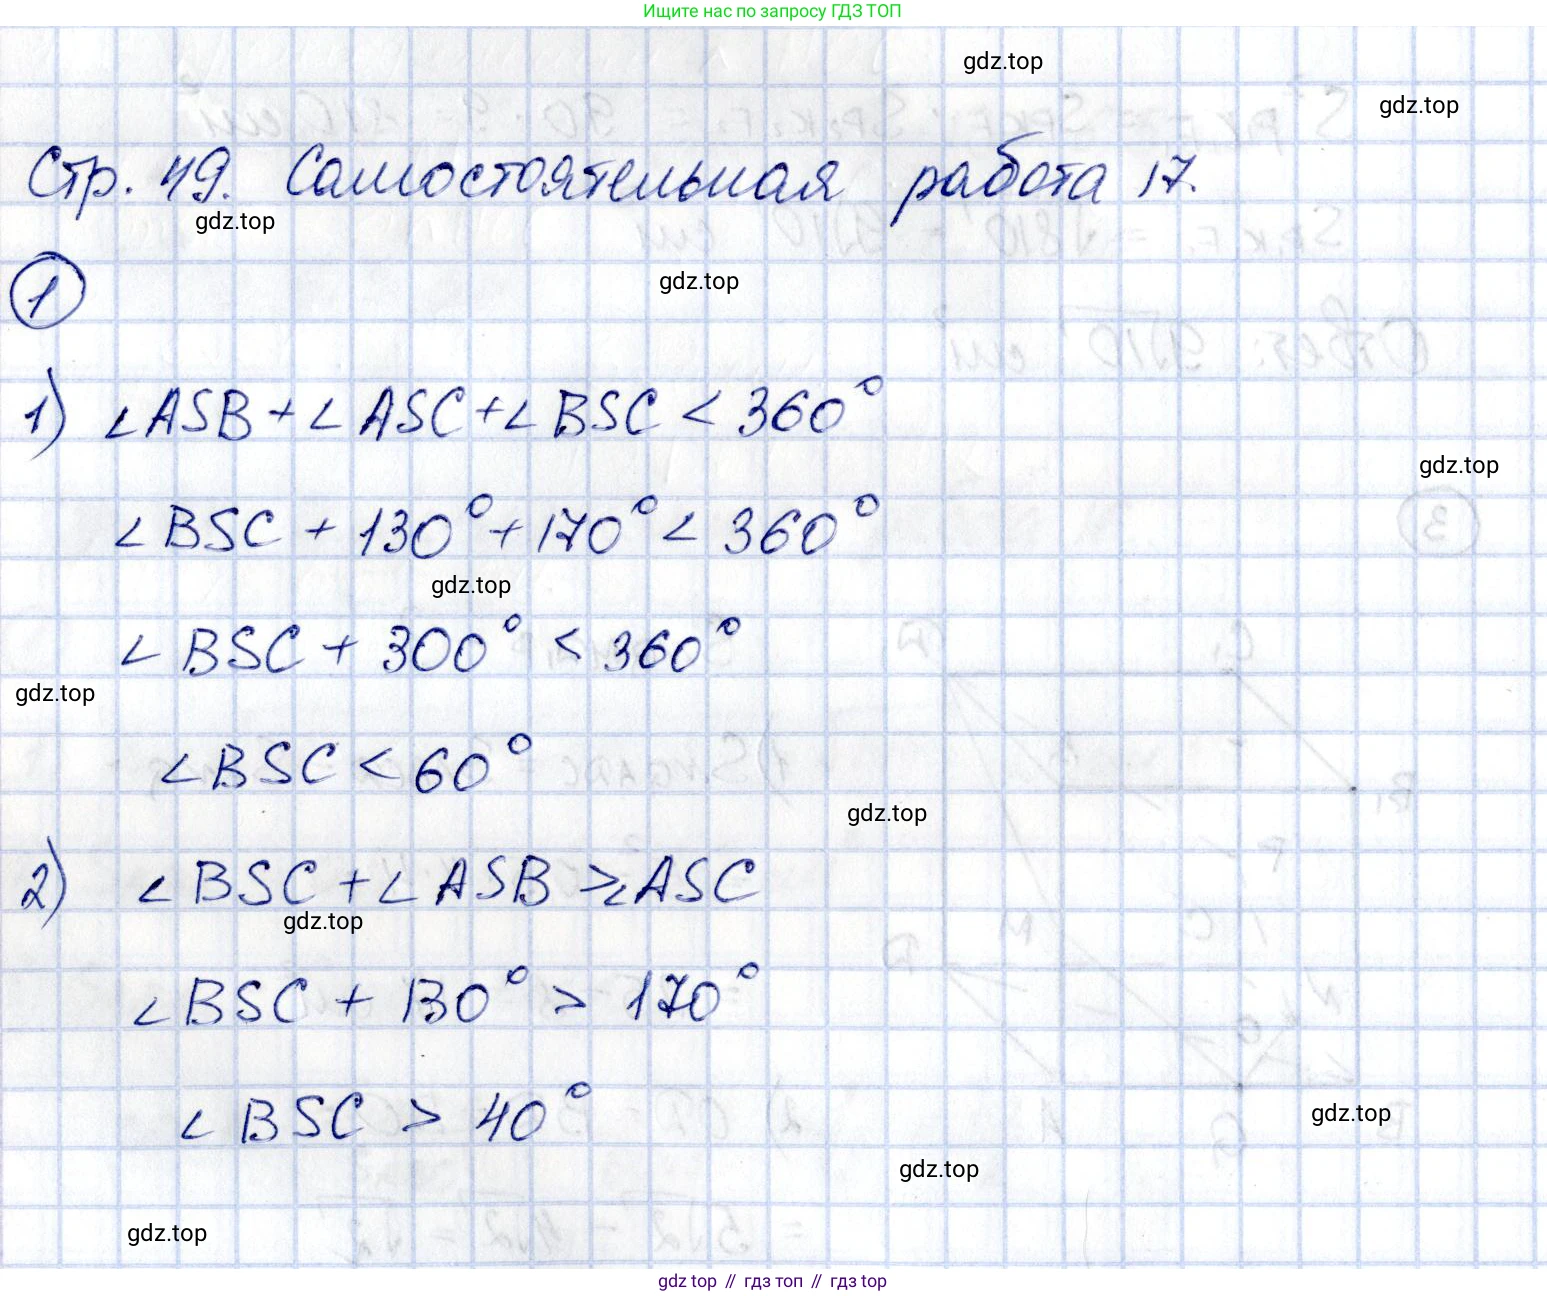 Ищите нас по запросу ГДЗ ТОП
gdz.top
gdz.top
Стр. 49. Самостоятельная работа 17.
gdz.top
gdz.top
1
1) ∠ASB + ∠ASC + ∠BSC < 360°
gdz.top
∠BSC + 130° + 170° < 360°
gdz.top
∠BSC + 300° < 360°
gdz.top
∠BSC < 60°
gdz.top
2) ∠BSC + ∠ASB > ∠ASC
gdz.top
∠BSC + 130° > 170°
∠BSC > 40°
gdz.top
gdz.top
gdz.top
gdz top // гдз топ // гдз top